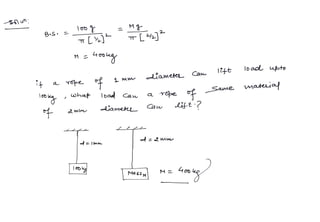 Soln:
B.S. = 100 g / π [1/2]² = M g / π [2/2]²
M = 400kg
if a rope of 1 mm diameter can lift load upto
100kg, what load can a rope of same material
of 2mm diameter can lift?
d = 1mm
d = 2mm
100kg
Mass M
M = 400kg